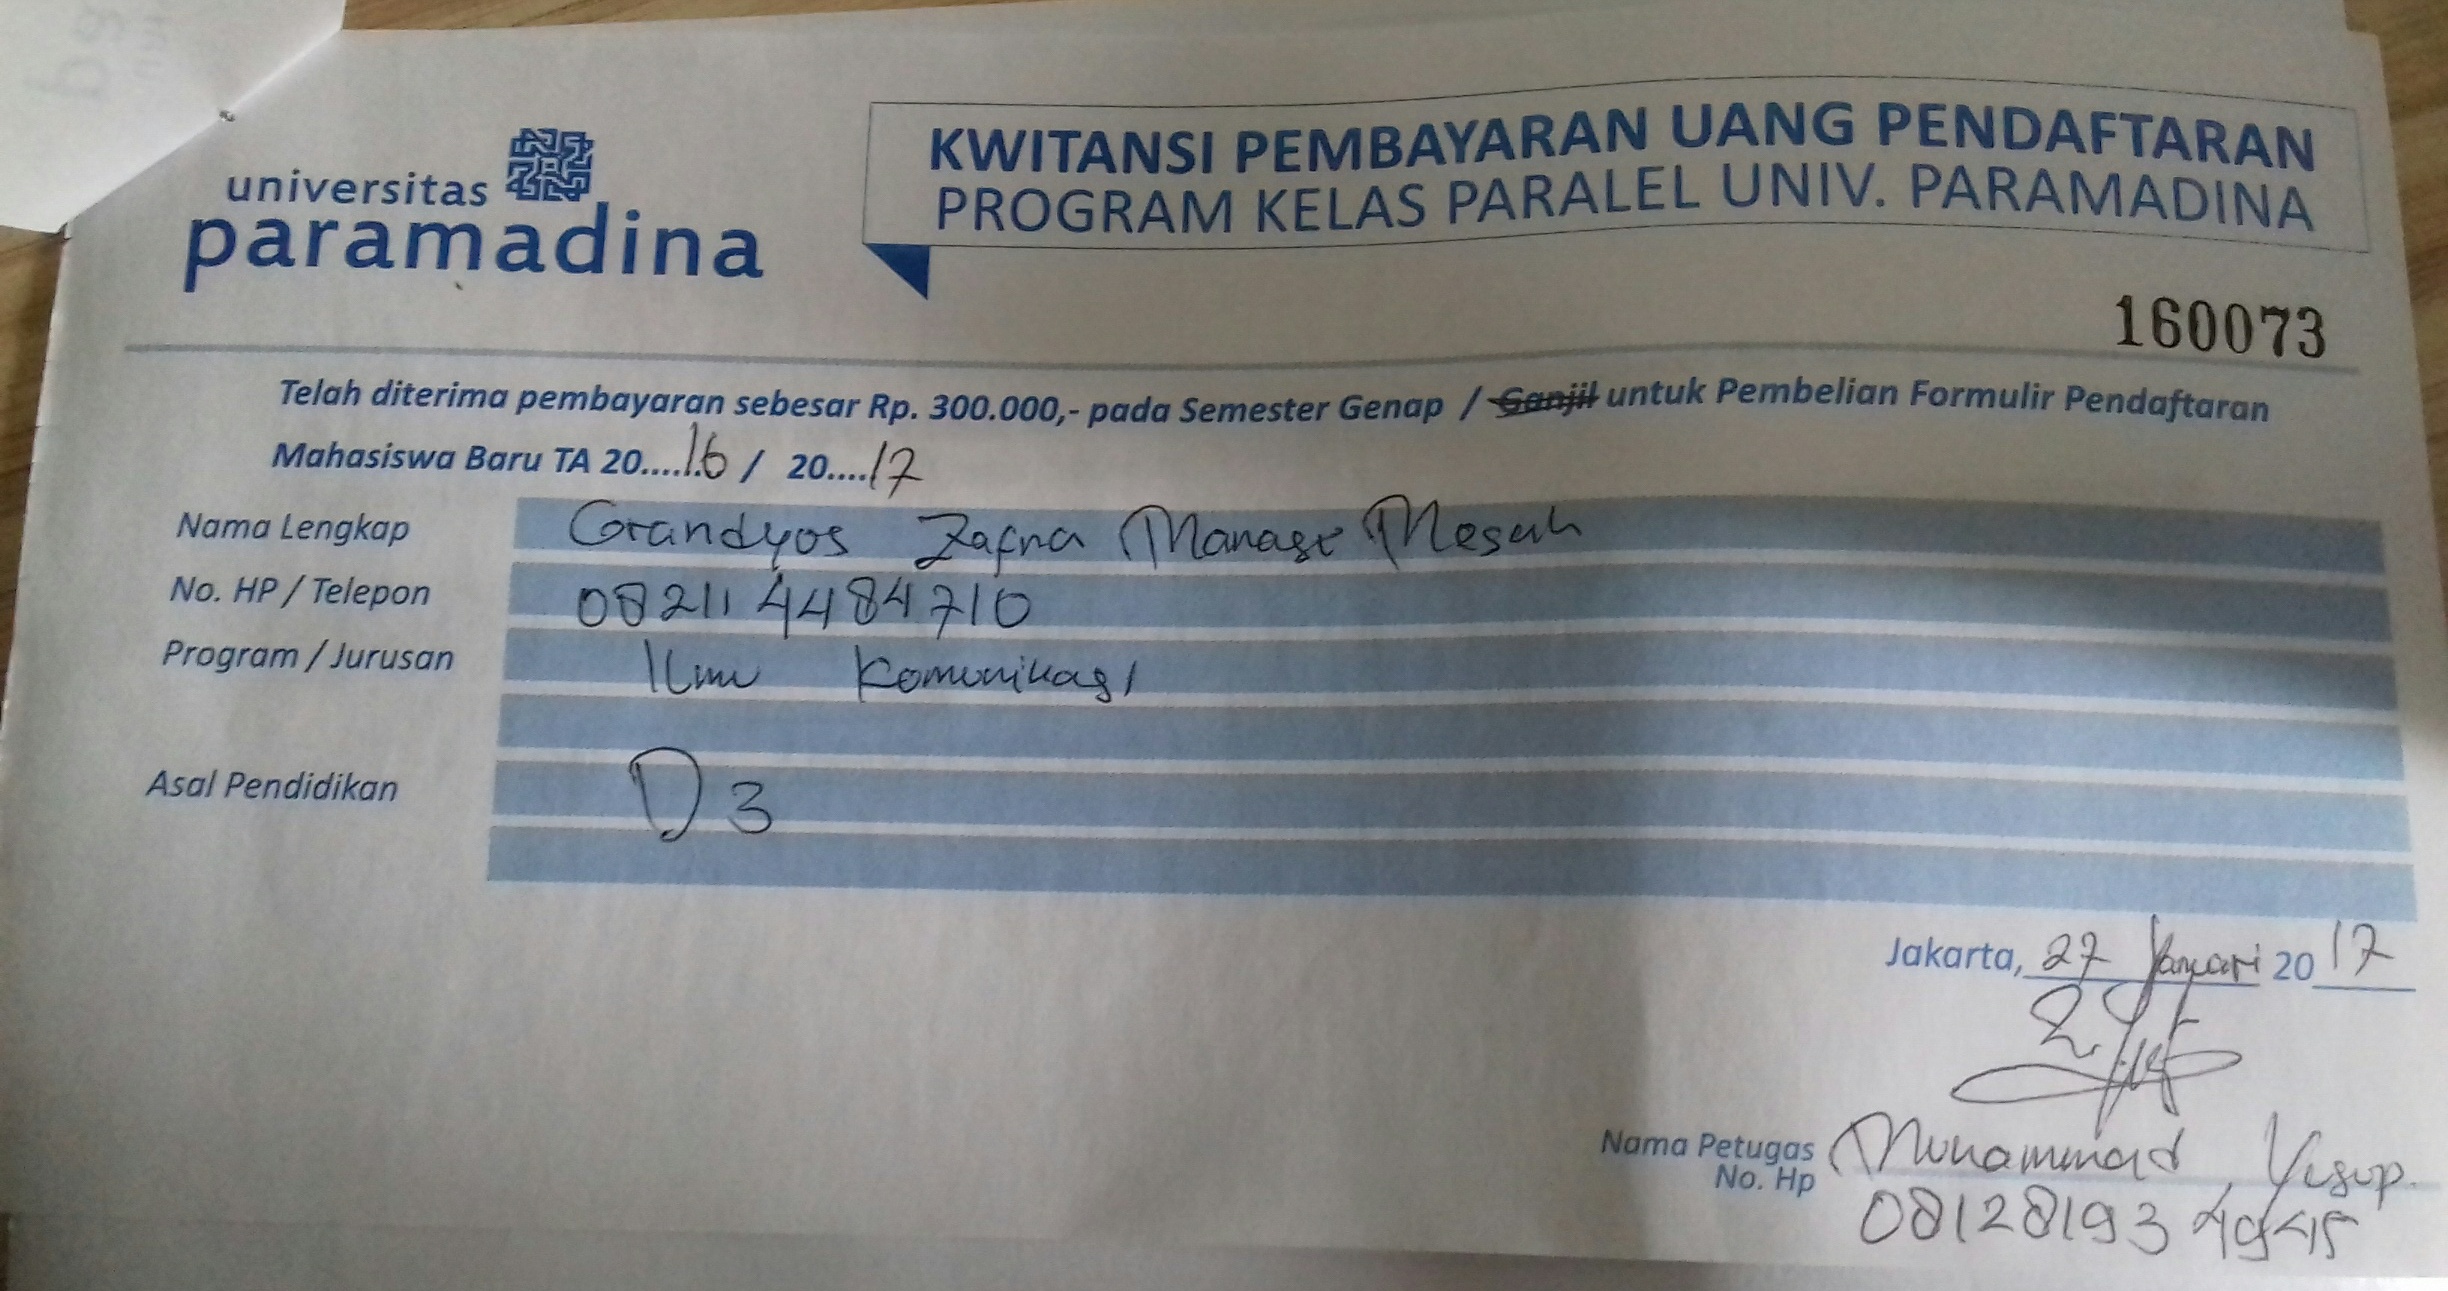 universitas
paramadina
KWITANSI PEMBAYARAN UANG PENDAFTARAN
PROGRAM KELAS PARALEL UNIV. PARAMADINA
160073
Telah diterima pembayaran sebesar Rp. 300.000,- pada Semester Genap / Ganjil untuk Pembelian Formulir Pendaftaran
Mahasiswa Baru TA 20....16 / 20....17
Nama Lengkap Grandyos Zafna Manase Mesah
No. HP / Telepon 082114484710
Program / Jurusan Ilmu Komunikasi
Asal Pendidikan D3
Jakarta, 27 Januari 2017
Nama Petugas Muhammad Yusup.
No. Hp